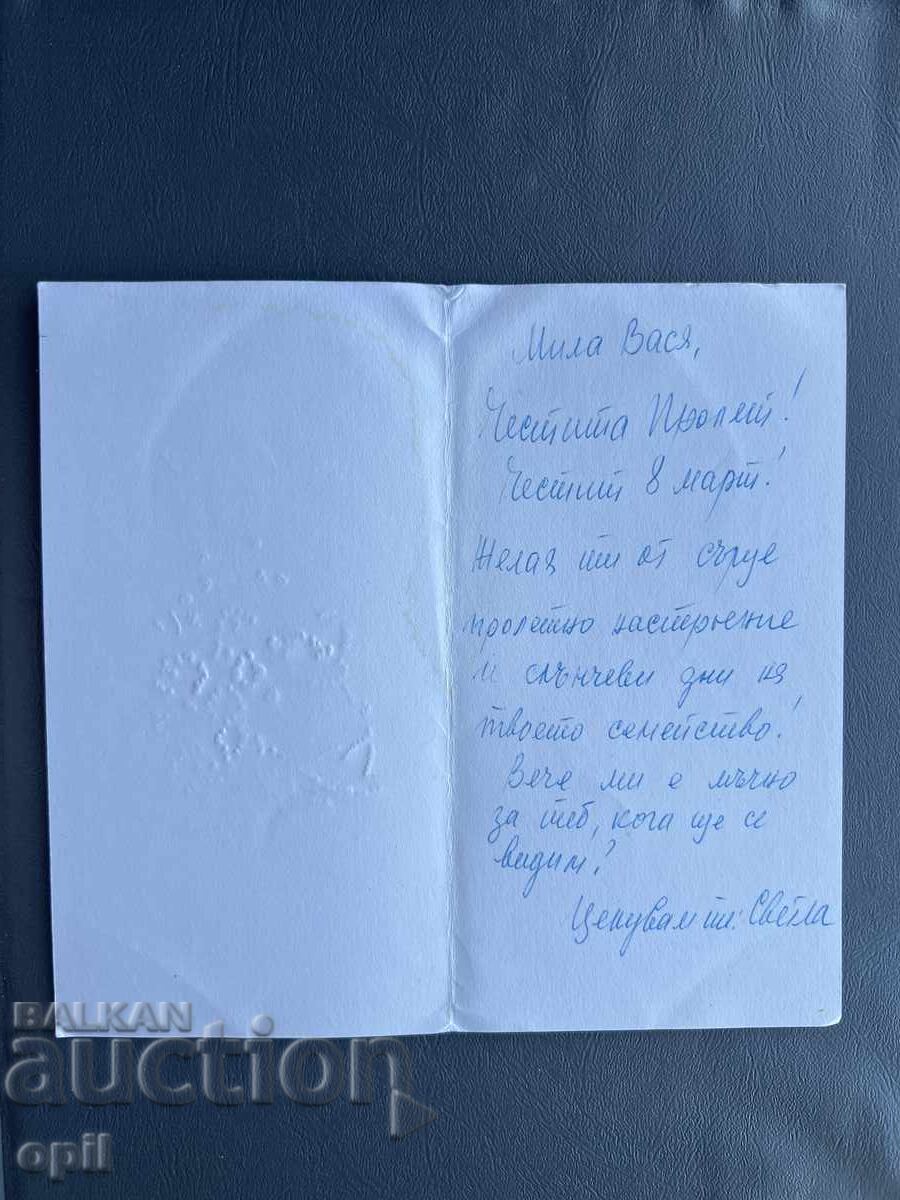 Мила Вася,
Честита Пролет!
Честит 8 март!
Желая ти от сърце
пролетно настроение
и слънчеви дни на
твоето семейство!
Вече ми е мъчно
за теб, кога ще се
видим?
Целувам ти: Светла
BALKAN
auction
opil